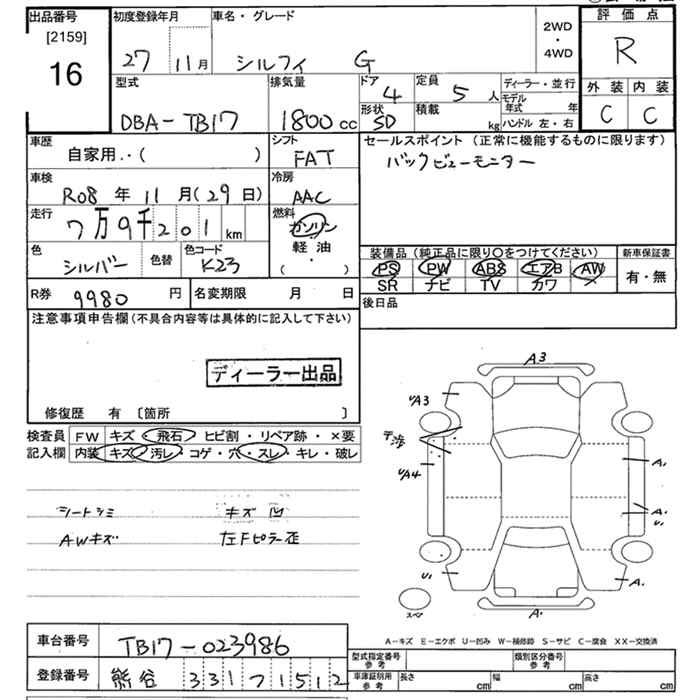 出品番号
[2159]
16
初度登録年月
27 11月
車名・グレード
シルフィ G
2WD
・
4WD
評価点
R
外装 内装
C C
型式
DBA-TB17
排気量
1800cc
ドア
4
定員
5人
ディーラー・並行
モデル
年式 年
形状
SD
積載
kg
ハンドル 左・右
車歴
自家用・・( )
シフト
FAT
セールスポイント(正常に機能するものに限ります)
バックビューモニター
車検
R08年11月(29日)
冷房
AAC
走行
7万9千201km
燃料
ガソリン
軽油
( ・ )
色
シルバー
色替
色コード
K23
装備品(純正品に限り○をつけてください)
PS PW ABS エアB AW
SR ナビ TV カワ
新車保証書
有・無
R券
9980円
名変期限 月 日
後日品
注意事項申告欄(不具合内容等は具体的に記入して下さい)
ディーラー出品
修復歴 有 [箇所 ]
検査員
記入欄
FW キズ・飛石・ヒビ割・リペア跡・×要
内装 キズ・汚レ・コゲ・穴・スレ・キレ・破レ
シートシミ キズ 凹
AWキズ 左Fピラー歪
A3
A3
A4
A1
A1
U1
U1
A1
A1
スペア
A-キズ E-エクボ U-凹み W-補修跡 S-サビ C-腐食 XX-交換済
車台番号
TB17-023986
登録番号
熊谷 331 71512
型式指定番号
参考
類別区分番号
参考
車庫証明用
参考
長さ cm
幅 cm
高さ cm